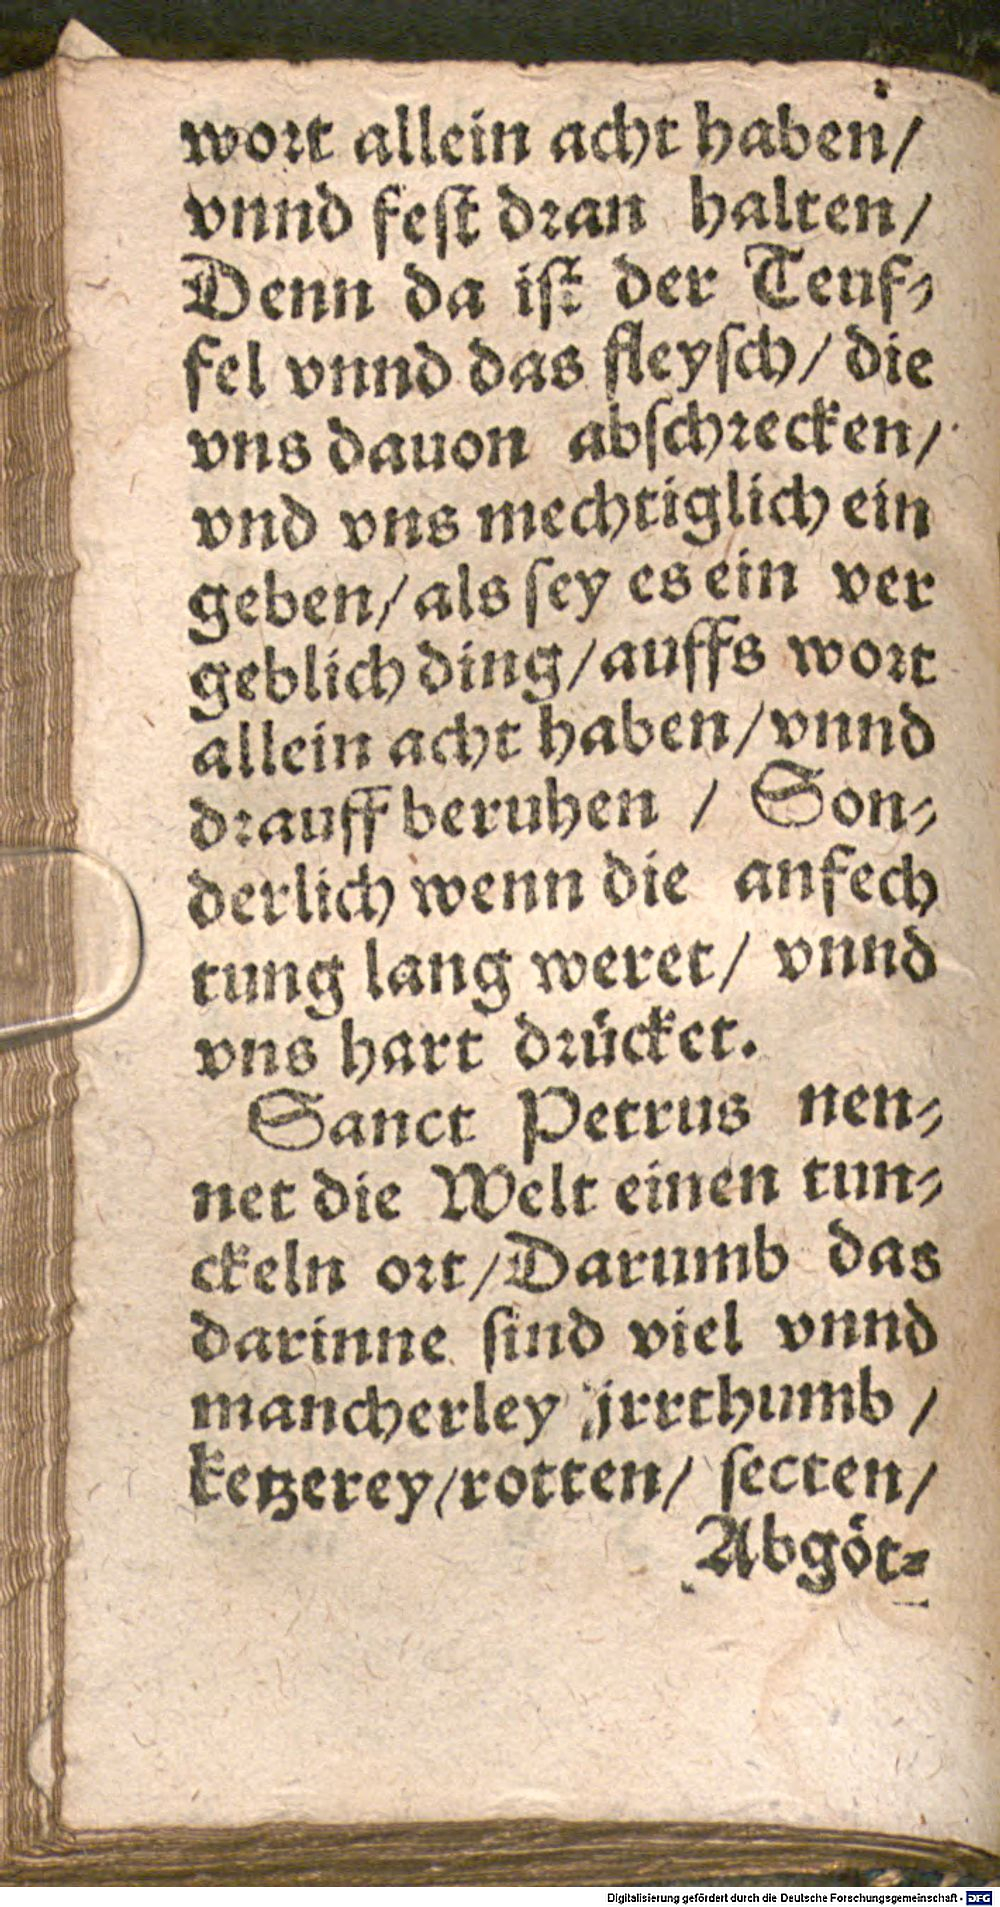 wort allein acht haben/
vnnd fest dran halten/
Denn da ist der Teuf-
fel vnnd das fleysch/ die
vns dauon abschrecken/
vnd vns mechtiglich ein
geben/ als sey es ein ver
geblich ding/ auffs wort
allein acht haben/ vnnd
drauff beruhen / Son-
derlich wenn die anfech
tung lang weret/ vnnd
vns hart drücket.
Sanct Petrus nen-
net die Welt einen tun-
ckeln ort/ Darumb das
darinne sind viel vnnd
mancherley jrrthumb /
ketzerey/ rotten/ secten/
Abgöt-
Digitalisierung gefördert durch die Deutsche Forschungsgemeinschaft - DFG